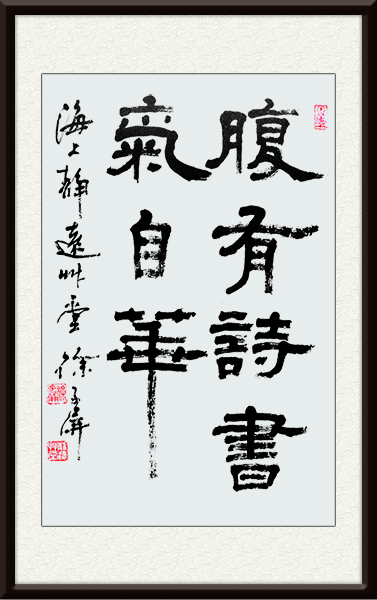 腹有詩書
氣自華
海上靜遠艸堂徐